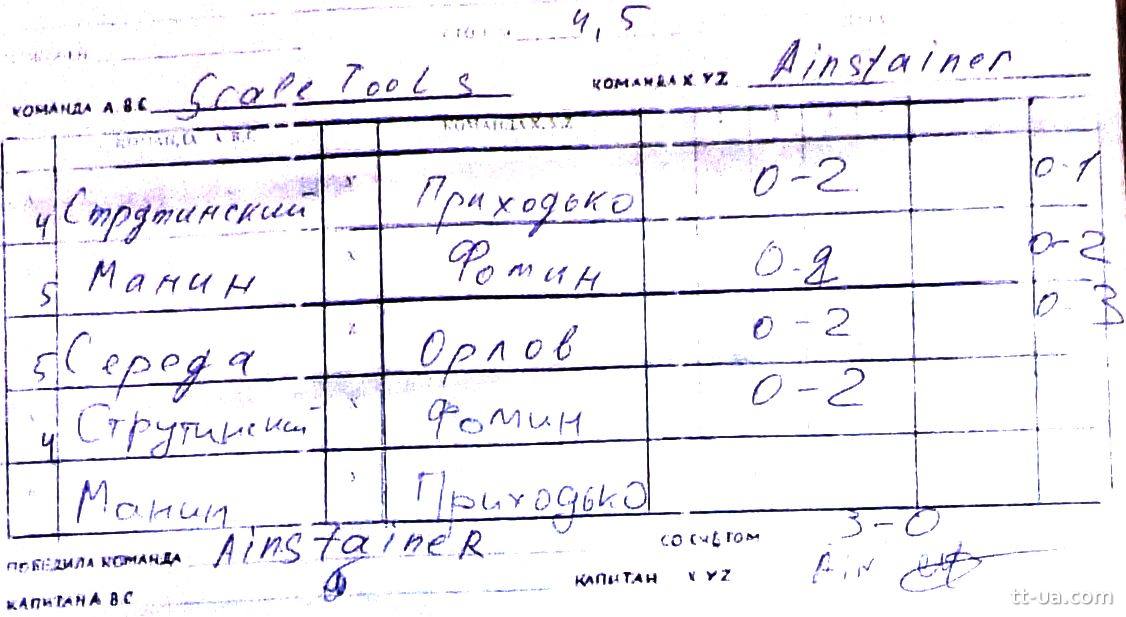 4, 5
КОМАНДА А.В.С Scale Tools КОМАНДА X YZ Ainstainer
КОМАНДА А.В.С КОМАНДА X.Y.Z
4 Струтинский x Приходько 0-2 0-1
5 Манин Фомин 0-2 0-2
5 Середа Орлов 0-2 0-3
4 Струтинский Фомин 0-2
Манин Приходько
ПОБЕДИЛА КОМАНДА AinstaineR СО СЧЕТОМ 3-0
КАПИТАН А В С КАПИТАН X YZ Ain
tt-ua.com